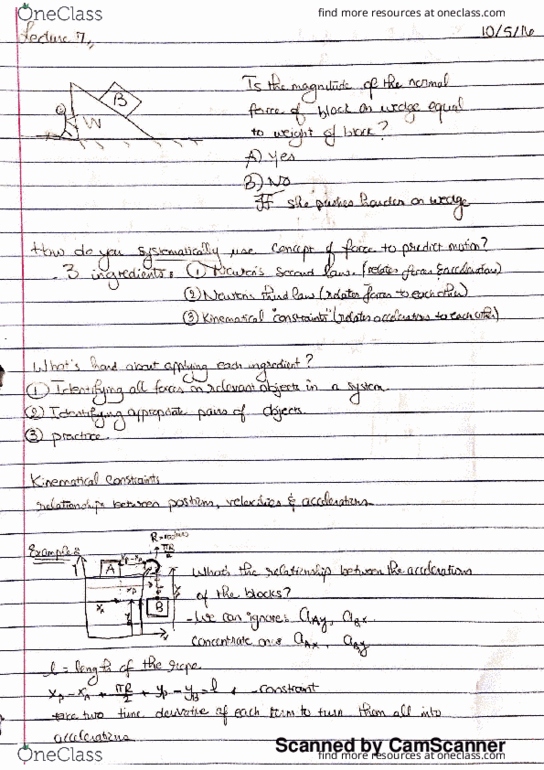 OneClass
find more resources at oneclass.com
Lecture 7,
10/5/16
B
W
Is the magnitude of the normal
force of block on wedge equal
to weight of block?
A) Yes
B) No
If she pushes harder on wedge
How do you systematically use concept of force to predict motion?
- 3 ingredients: (1) Newton's second law (relates forces & acceleration)
(2) Newtons third law (relates forces to each other)
(3) Kinematical "constraints" (relates accelerations to each other)
What's hard about applying each ingredient?
(1) Identifying all forces on relevant objects in a system.
(2) Identifying appropriate pairs of objects.
(3) practice.
Kinematical Constraints
relationships between positions, velocities & accelerations
Example:
R = radius
πR/2
A
xp-xA
B
What's the relationship between the accelerations
of the blocks?
- We can ignore: aAy, aBx
concentrate on: aAx, aBy
l = length of the rope.
xp - xA + πR/2 + yp - yB = l - constraint
take two time derivative of each term to turn them all into
accelerations
OneClass
Scanned by CamScanner
find more resources at oneclass.com